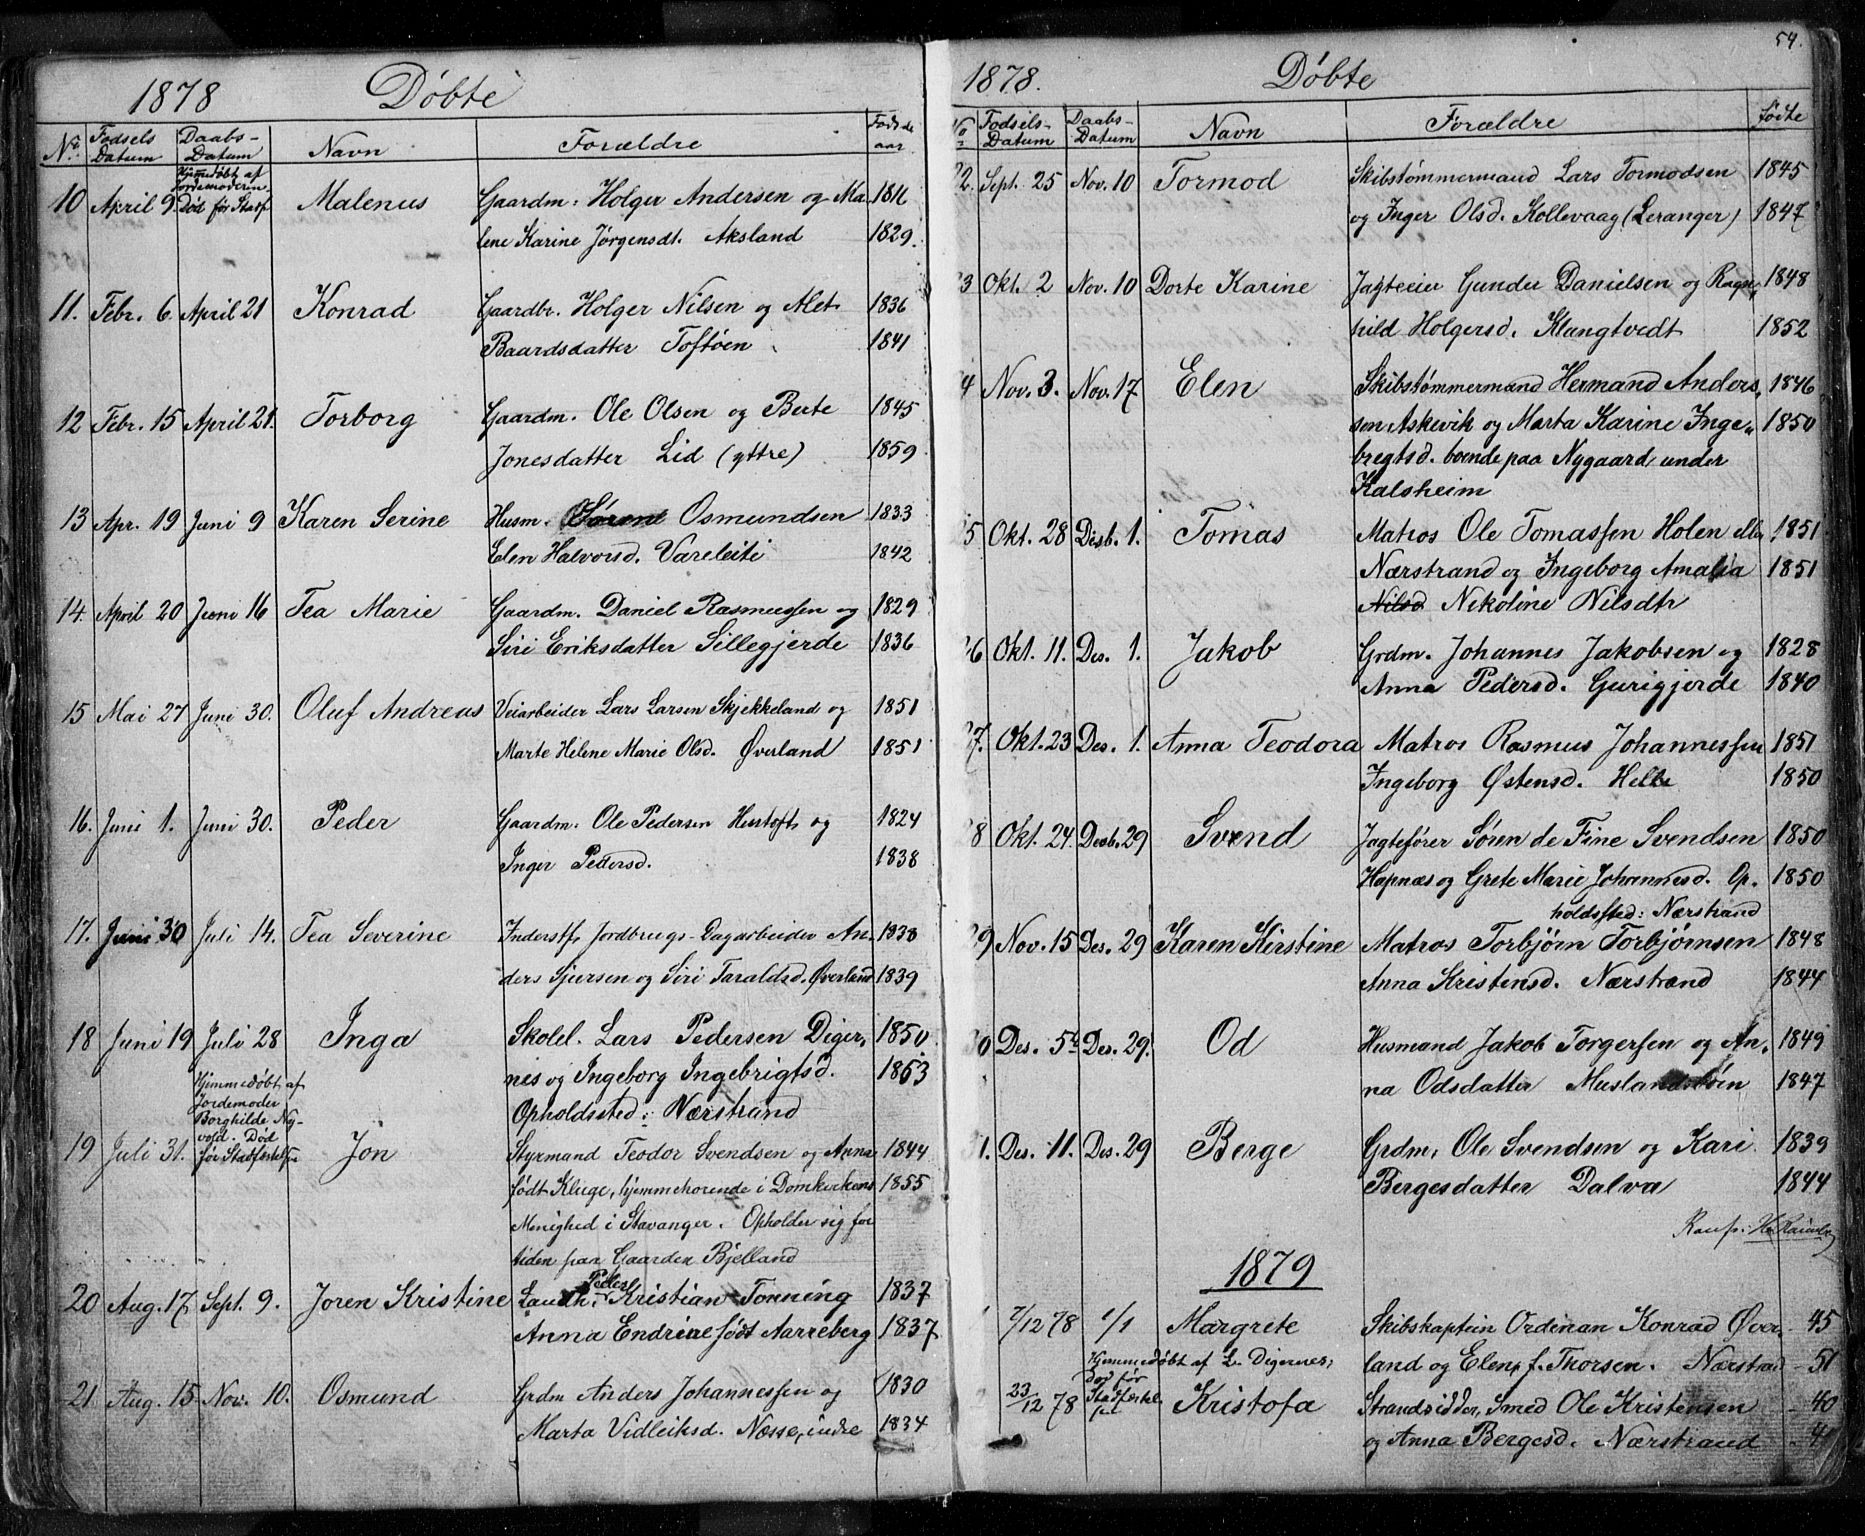 1878 Døbte
No. Fødsels Datum Daabs-Datum Navn Forældre Føds.de aar
10 April 9. Hjemmedøbt af Jordemoderen. Død før Stadf Malenus Gaardm. Holger Andersen og Ma 1816
lene Karine Jørgensdt. Aksland 1829.
11. Febr. 6. April 21 Konrad Gaardbr. Holger Nilsen og Alet 1836
Baardsdatter Toftøen 1841
12 Febr. 15 April 21. Torborg Gaardm. Ole Olsen og Berte 1845
Jonesdatter Lid (yttre) 1859
13 Apr. 19 Juni 9 Karen Serine Husm. Osmundsen 1833
Elen Halvorsd. Vareleiti 1842
14. April 20 Juni 16 Tea Marie Gaardm. Daniel Rasmussen og 1829
Siri Eriksdatter Sillegjerde 1836
15 Mai 27 Juni 30. Oluf Andreas Veiarbeider Lars Larsen Skjekkeland og 1851
Marte Helene Marie Olsd. Øverland 1851
16. Juni 1. Juni 30. Peder Gaardm. Ole Pedersen Hustoft og 1824
Inger Pedersd. 1838
17. Juni 30 Juli 14. Tea Severine Inderstf, Jordbrugs-Dagarbeider An- 1838
ders Sjursen og Siri Taraldsd. Øverland 1839
18 Juni 19 Juli 28 Inga Skolel. Lars Pedersen Diger, 1850
nes og Ingeborg Ingebrigtsd. 1853
Opholdssted: Nærstrand
19 Juli 31. Hjemmedøbt af Jordemoder Borghilde Ny-vold. Død før Stadfestelse Jon Styrmand Teodor Svendsen og Anna 1844
født Kluge, hjemmehorende i Domkirkens 1855
Menighed i Stavanger. Opholder sig for
tiden paa Gaarden Bjelland
20 Aug. 17. Sept. 9. Joren Kristine Landh. Peder Kristian Tonning 1837
Anna Endrine født Aarreberg 1837
21 Aug. 15 Nov. 10. Osmund Grdm Anders Johannessen og 1830
Marta Vidleiksd. Næsse, indre 1834
54.
1878. Døbte
No Fødsels-Datum Daabs-Datum Navn Forældre fødte
22. Sept. 25 Nov. 10 Tormod Skibstømmermand Lars Tormodsen 1845
og Inger Olsd. Kollevaag (Leranger) 1847
23 Okt. 2 Nov. 10 Dorte Karine Jagteeier Gunder Danielsen og Ragn, 1848
hild Holgersd. Klungtvedt 1852
4 Nov. 3. Nov. 17 Elen Skibstømmermand Hermand Anders, 1846
sen Askevik og Marta Karine Inge, 1850
bregtsd. boende paa Nygaard, under
Kalsheim
5 Okt. 28 Desb. 1. Tomas Matros Ole Tomassen Holen eller 1851
Nærstrand og Ingeborg Amalia 1851
Nilsd Nikoline Nilsdtr
26 Okt. 11. Des. 1. Jakob Grdm. Johannes Jakobsen og 1828
Anna Pedersd. Gurigjerde 1840
27. Okt. 23 Des. 1. Anna Teodora Matros Rasmus Johannessen 1851
Ingeborg Østensd. Helle 1850
8 Okt. 24. Desb. 29 Svend Jagtefører Søren de Fine Svendsen 1850
Hapnæs og Grete Marie Johannesd. Op. 1850
holdssted: Nærstrand
29 Nov. 15 Des. 29 Karen Kirstine Matros Torbjørn Torbjørnsen 1848
Anna Kristensd. Nærstrand 1844
30 Des. 5 Des. 29. Od Husmand Jakob Torgersen og An, 1849
na Odsdatter Muslandstøen 1847
1. Des. 11. Des. 29 Berge Grdm, Ole Svendsen og Kari 1839
Bergesdatter Dalva 1844
1879
1 7/12 78 1/1 Margrete Skibskaptein Ordinan Konrad Øver, 45
land og Elen f. Thorsen. Nærstrand 51
23/12 78 Hjemmedøbt af L. Digernes, Død før Stadfestel se Kristofa Strandsidder, Smed Ole Kristensen 40
og Anna Bergesd. Nærstrand